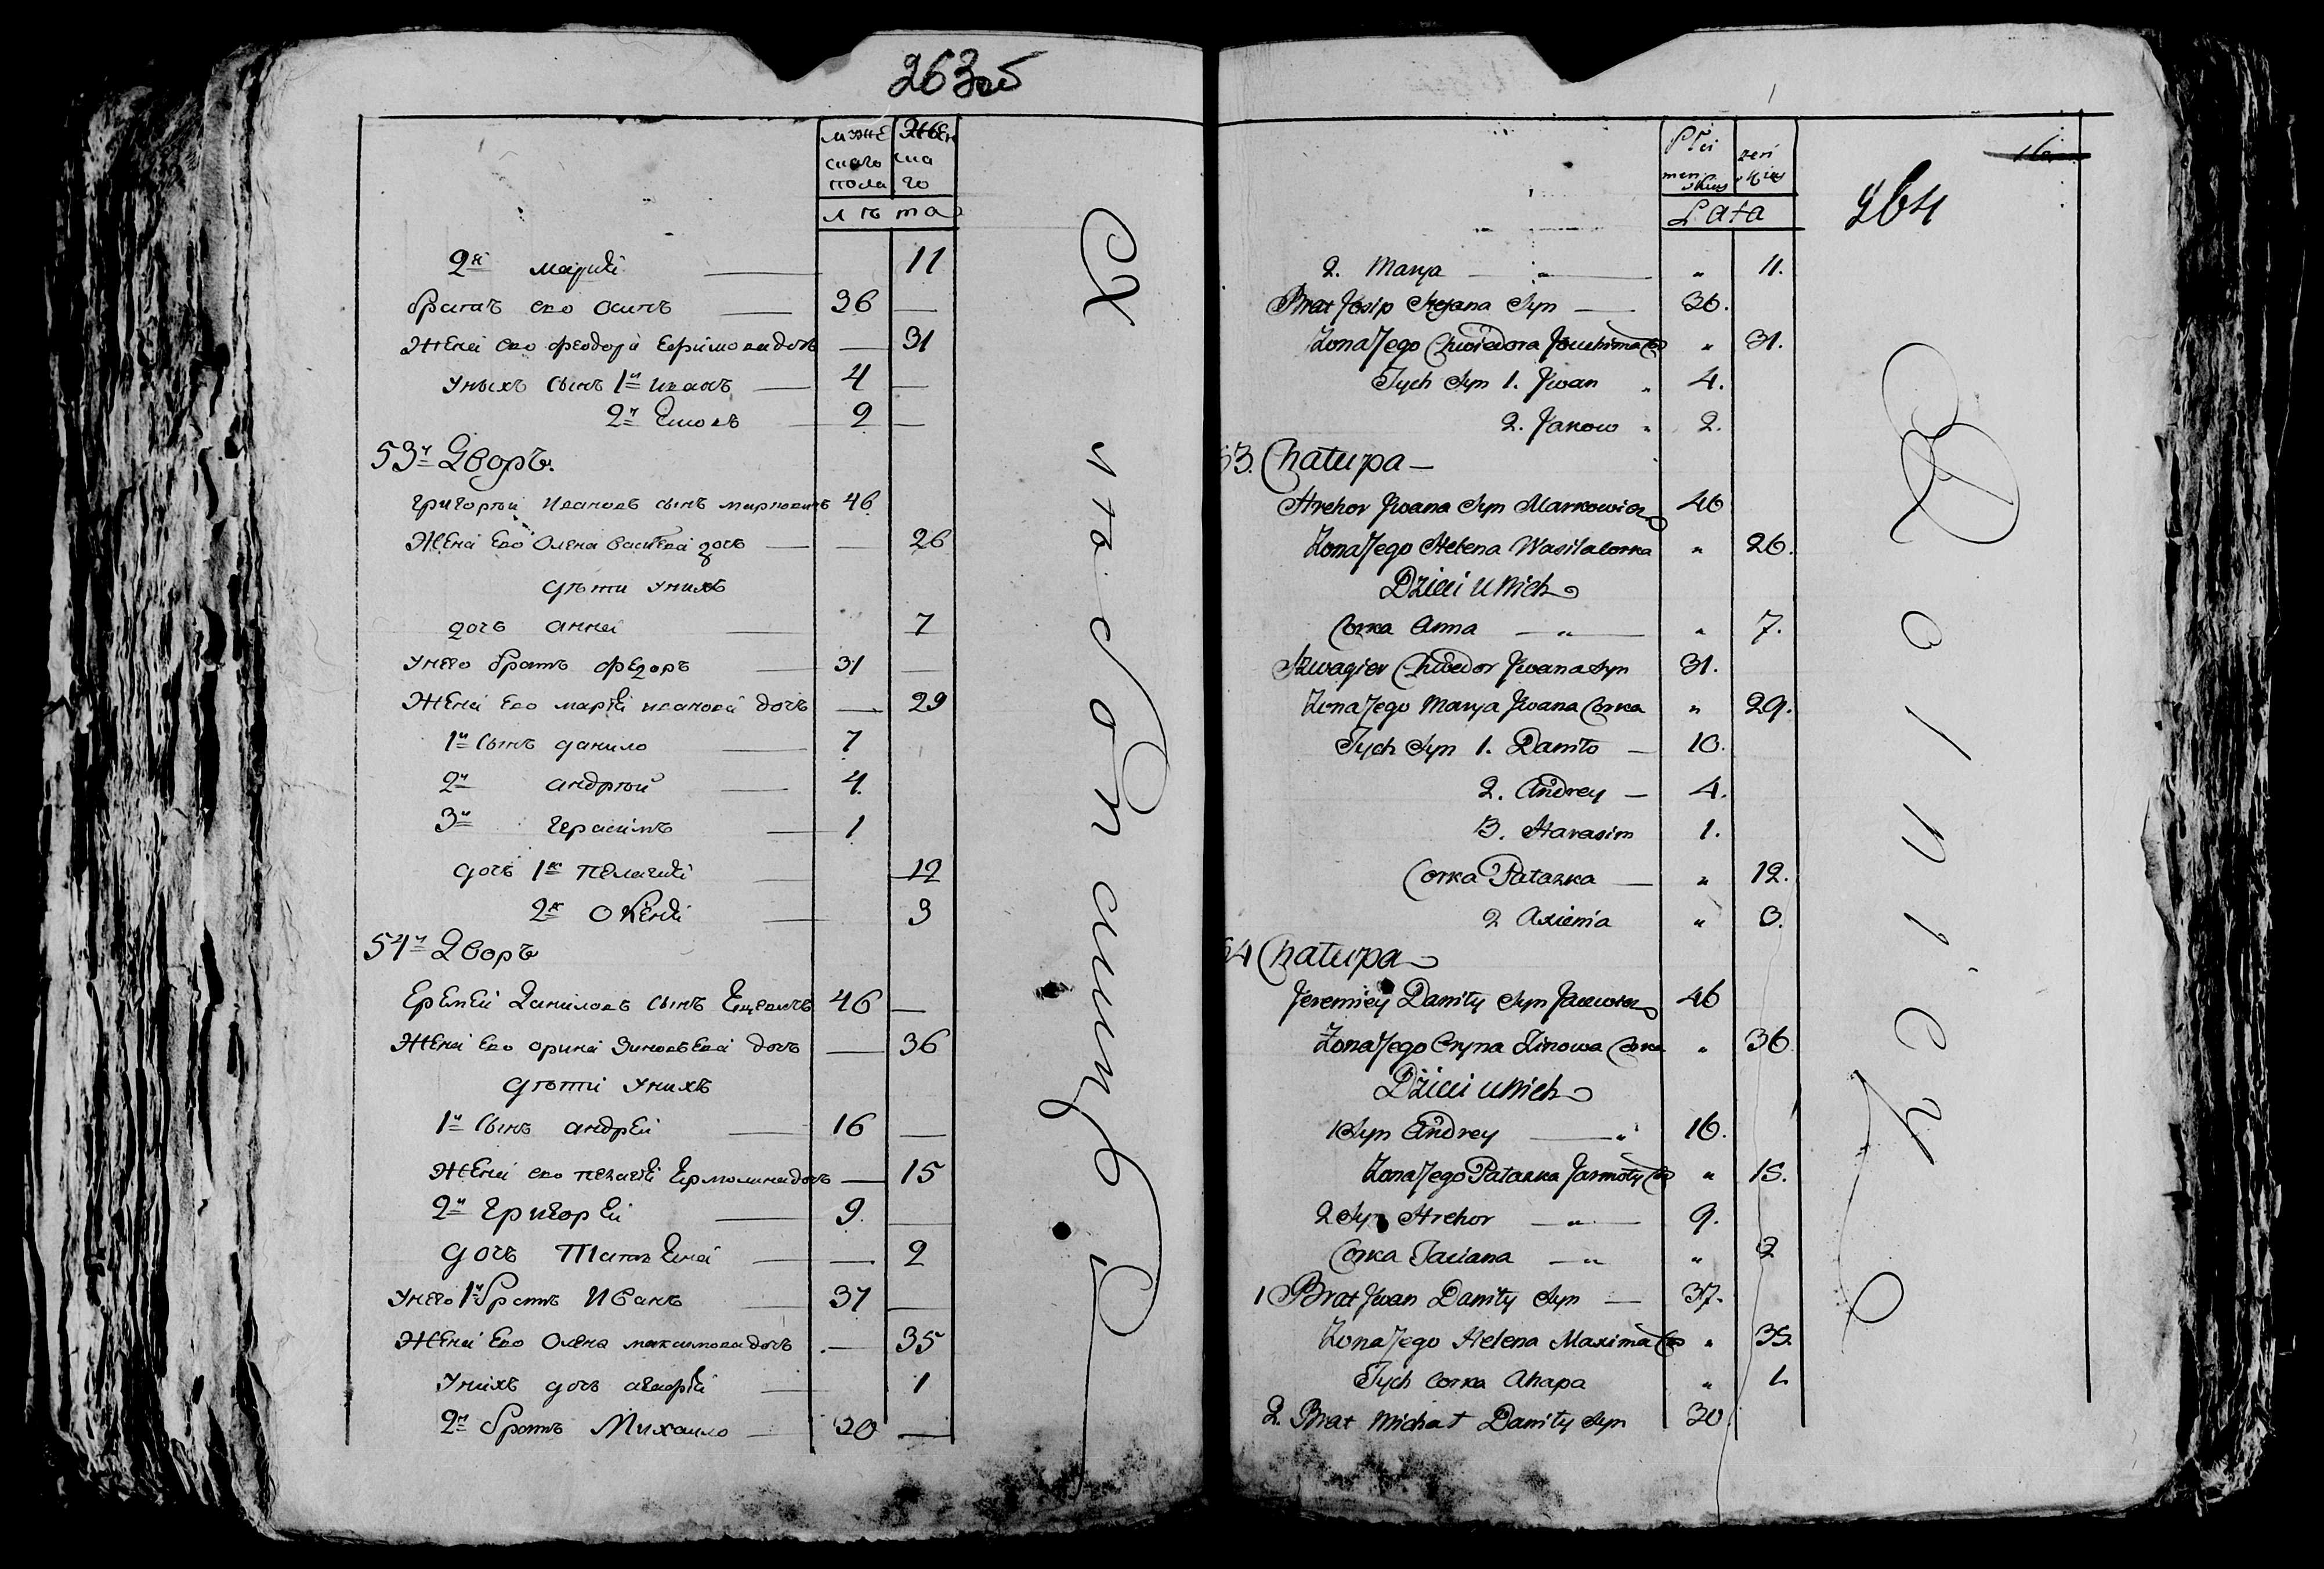 263об
мужескаго пола
женскаго
лѣта
2я Марья — 11
братъ ево Осипъ — 26 —
жена ево Феодора Ефимова дочь — 31
у ныхъ сынъ 1й Иванъ — 4 —
2й — 2 —
53й Дворъ.
Григорѣй Ивановъ сынъ Марковичь 46
Жена ево Олена Васильева дочь — — 26
дѣти у нихъ
дочь Анна — 7
у него братъ Федоръ — 31 —
Жена ево Марья Иванова дочь — 29
1й сынъ Данило — 7
2й Андрѣй — 4
3й Герасимъ — 1
дочь 1я Пелагия — 12
2я — 3
54й Дворъ
Еремѣй Даниловъ сынъ 46 —
Жена ево Орина Зиновьева дочь — 36
дѣти у нихъ
1й сынъ Андрей — 16 —
Жена ево Пелагия Ермолина дочь — 15
2й Григорей — 9. —
дочь Татьяна — — 2
у него 1й братъ Иванъ — 37 —
Жена ево Олена Максимова дочь — 35
у нихъ дочь — 1
2й братъ Михаило — 20 —
264
Płci
męskiey
żeńskiey
Lata
2. Marya — „ — „ 11.
Brat Josip Syn — 26.
Żona Jego Chwiedora „ 31.
Tych Syn 1. Jwan „ 4.
2. Jakow „ 2.
53. Chałupa —
Hrehor Jwana Syn Markowicz 46
Żona Jego Helena Wasila Corka „ 26.
Dzieci u Nich
Corka Anna — „ — „ 7.
Szwagier Chwedor Jwana Syn 31.
Żona Jego Marya Jwana Corka „ 29.
Tych Syn 1. Daniło — 10.
2. Andrey — 4.
3. Harasim 1.
Corka Pałaszka — „ 12.
2 Axienia „ 3.
54 Chałupa
Jeremiey Daniły Syn 46
Żona Jego Oryna Zinowa Corka „ 36
Dzieci u Nich
1 Syn Andrey — „ 16.
Żona Jego Pałaszka Jarmoły Co „ 15.
2 Syn Hrehor — „ — 9.
Corka Taciana — „ „ 2
1 Brat Jwan Daniły Syn — 37.
Żona Jego Helena Maxima Co „ 35.
Tych Corka Ahapa „ 1.
2. Brat Michał Daniły Syn 30